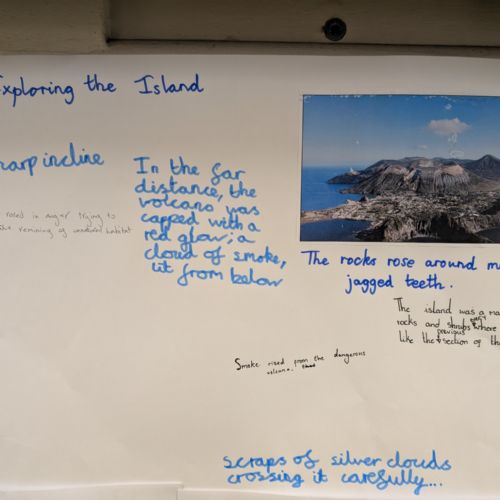 Exploring the Island
harp incline
In the far
distance, the
volcano was
capped with a
red glow; a
cloud of smoke,
lit from below
rosed in anger trying to
of unnatural habitat
The rocks rose around m
jagged teeth.
The island was a ma
rocks and shrubs every where
like the previous section of th
Smoke rised from the dangerous
volcano.
scraps of silver clouds
crossing it carefully...